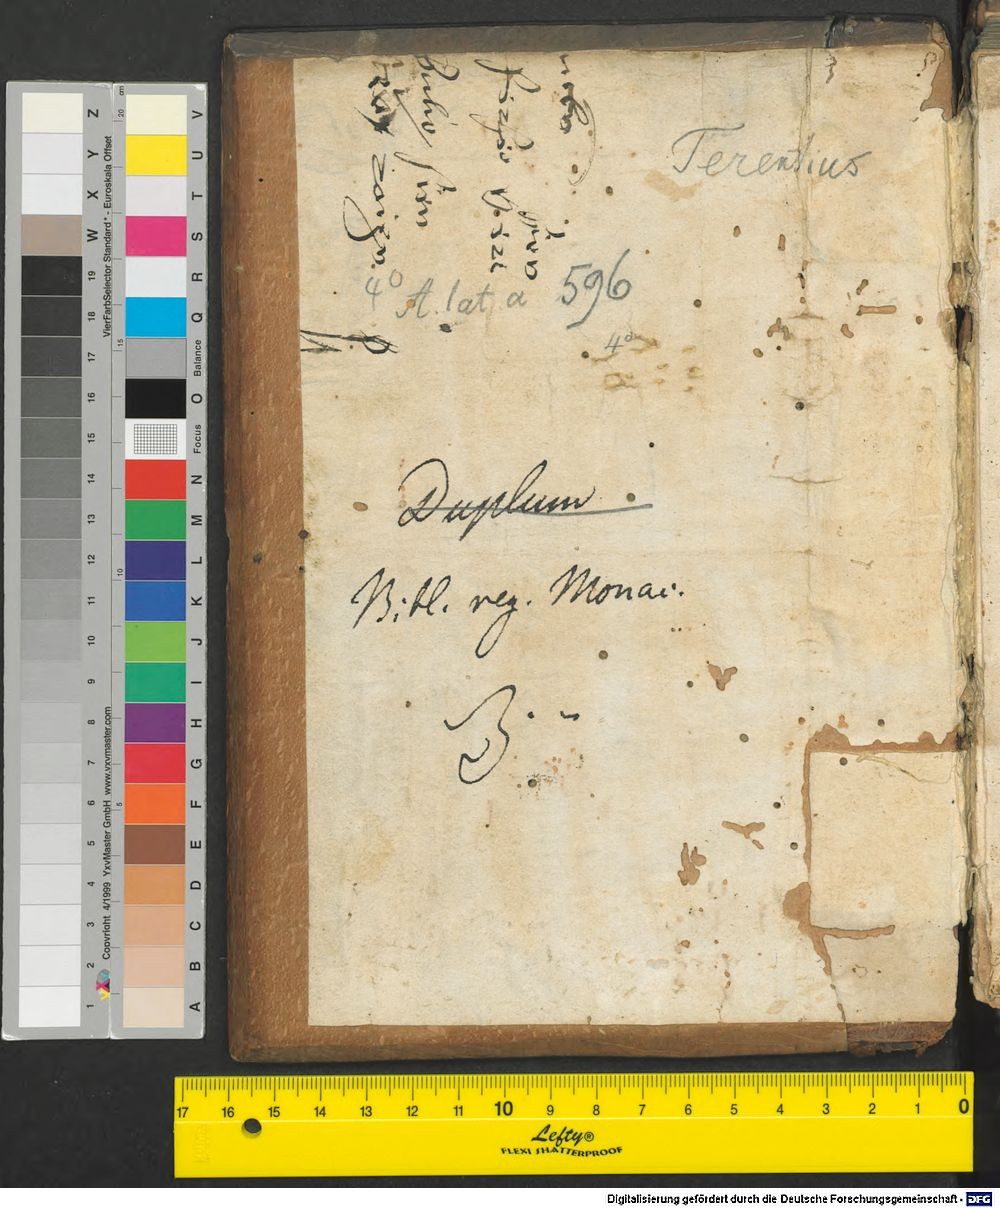 Terentius
4° A. lat. a 596
4°
Duplum
Bibl. reg. Monac.
VierFarbSelector Standard* - Euroskala Offset
Copyright 4/1999 YxyMaster GmbH www.yxymaster.com
cm
20
15
10
5
Z
Y
X
W
19
18
17
16
15
14
13
12
11
10
9
8
7
6
5
4
3
2
1
V
U
T
S
R
Q
Balance
O
Focus
N
M
L
K
J
I
H
G
F
E
D
C
B
A
17 16 15 14 13 12 11 10 9 8 7 6 5 4 3 2 1 0
Lefty®
FLEXI SHATTERPROOF
Digitalisierung gefördert durch die Deutsche Forschungsgemeinschaft - DFG